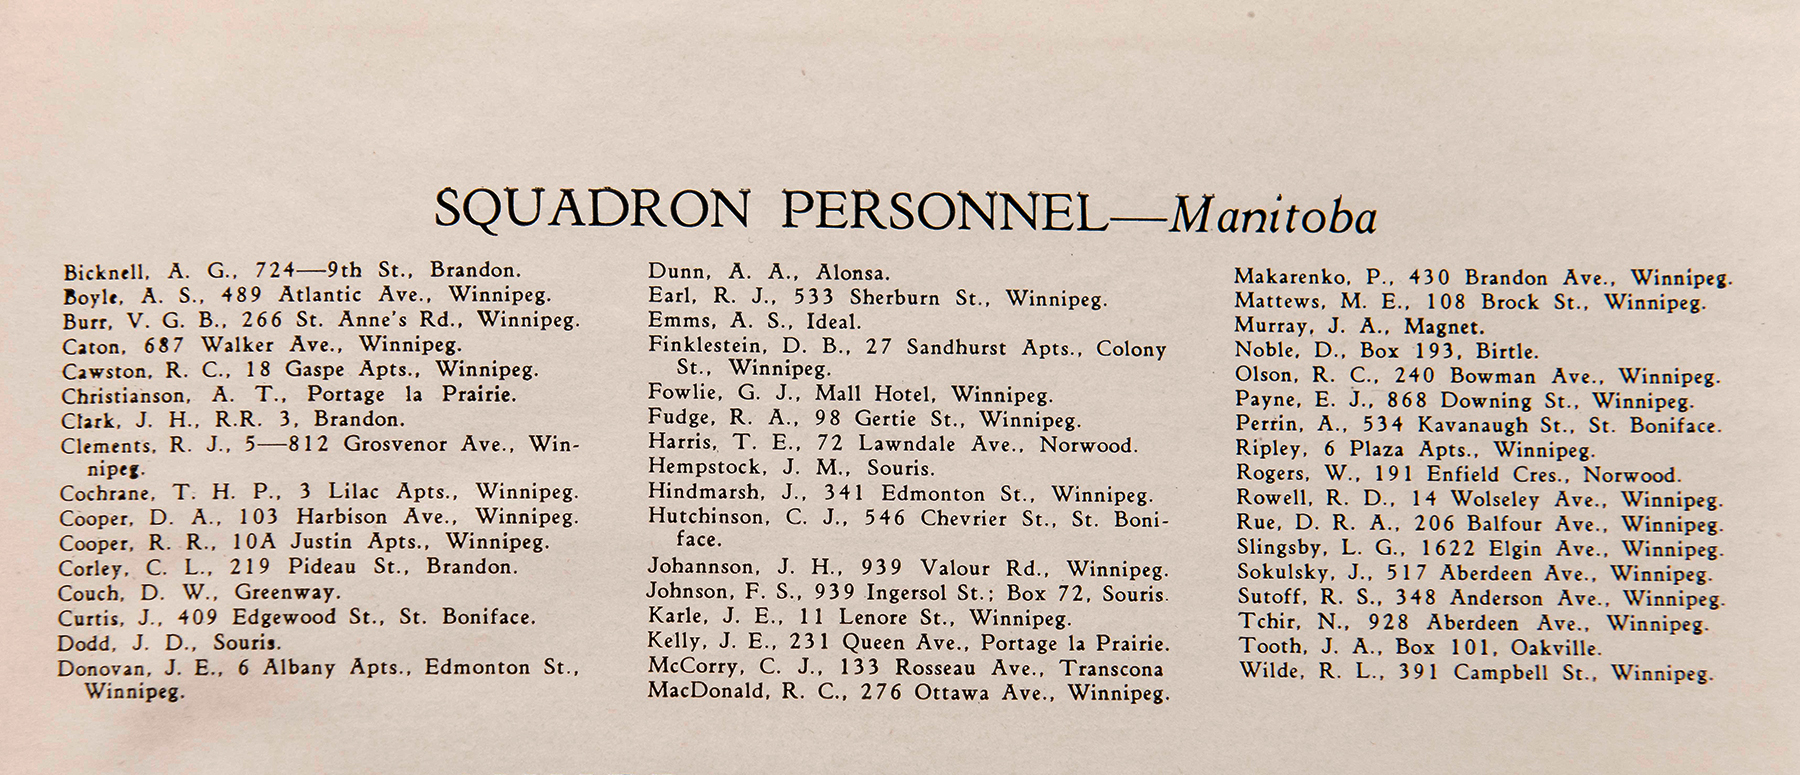 SQUADRON PERSONNEL—Manitoba
Bicknell, A. G., 724—9th St., Brandon.
Boyle, A. S., 489 Atlantic Ave., Winnipeg.
Burr, V. G. B., 266 St. Anne's Rd., Winnipeg.
Caton, 687 Walker Ave., Winnipeg.
Cawston, R. C., 18 Gaspe Apts., Winnipeg.
Christianson, A. T., Portage la Prairie.
Clark, J. H., R.R. 3, Brandon.
Clements, R. J., 5—812 Grosvenor Ave., Win-
nipeg.
Cochrane, T. H. P., 3 Lilac Apts., Winnipeg.
Cooper, D. A., 103 Harbison Ave., Winnipeg.
Cooper, R. R., 10A Justin Apts., Winnipeg.
Corley, C. L., 219 Pideau St., Brandon.
Couch, D. W., Greenway.
Curtis, J., 409 Edgewood St., St. Boniface.
Dodd, J. D., Souris.
Donovan, J. E., 6 Albany Apts., Edmonton St.,
Winnipeg.
Dunn, A. A., Alonsa.
Earl, R. J., 533 Sherburn St., Winnipeg.
Emms, A. S., Ideal.
Finklestein, D. B., 27 Sandhurst Apts., Colony
St., Winnipeg.
Fowlie, G. J., Mall Hotel, Winnipeg.
Fudge, R. A., 98 Gertie St., Winnipeg.
Harris, T. E., 72 Lawndale Ave., Norwood.
Hempstock, J. M., Souris.
Hindmarsh, J., 341 Edmonton St., Winnipeg.
Hutchinson, C. J., 546 Chevrier St., St. Boni-
face.
Johannson, J. H., 939 Valour Rd., Winnipeg.
Johnson, F. S., 939 Ingersol St.; Box 72, Souris.
Karle, J. E., 11 Lenore St., Winnipeg.
Kelly, J. E., 231 Queen Ave., Portage la Prairie.
McCorry, C. J., 133 Rosseau Ave., Transcona
MacDonald, R. C., 276 Ottawa Ave., Winnipeg.
Makarenko, P., 430 Brandon Ave., Winnipeg.
Mattews, M. E., 108 Brock St., Winnipeg.
Murray, J. A., Magnet.
Noble, D., Box 193, Birtle.
Olson, R. C., 240 Bowman Ave., Winnipeg.
Payne, E. J., 868 Downing St., Winnipeg.
Perrin, A., 534 Kavanaugh St., St. Boniface.
Ripley, 6 Plaza Apts., Winnipeg.
Rogers, W., 191 Enfield Cres., Norwood.
Rowell, R. D., 14 Wolseley Ave., Winnipeg.
Rue, D. R. A., 206 Balfour Ave., Winnipeg.
Slingsby, L. G., 1622 Elgin Ave., Winnipeg.
Sokulsky, J., 517 Aberdeen Ave., Winnipeg.
Sutoff, R. S., 348 Anderson Ave., Winnipeg.
Tchir, N., 928 Aberdeen Ave., Winnipeg.
Tooth, J. A., Box 101, Oakville.
Wilde, R. L., 391 Campbell St., Winnipeg.